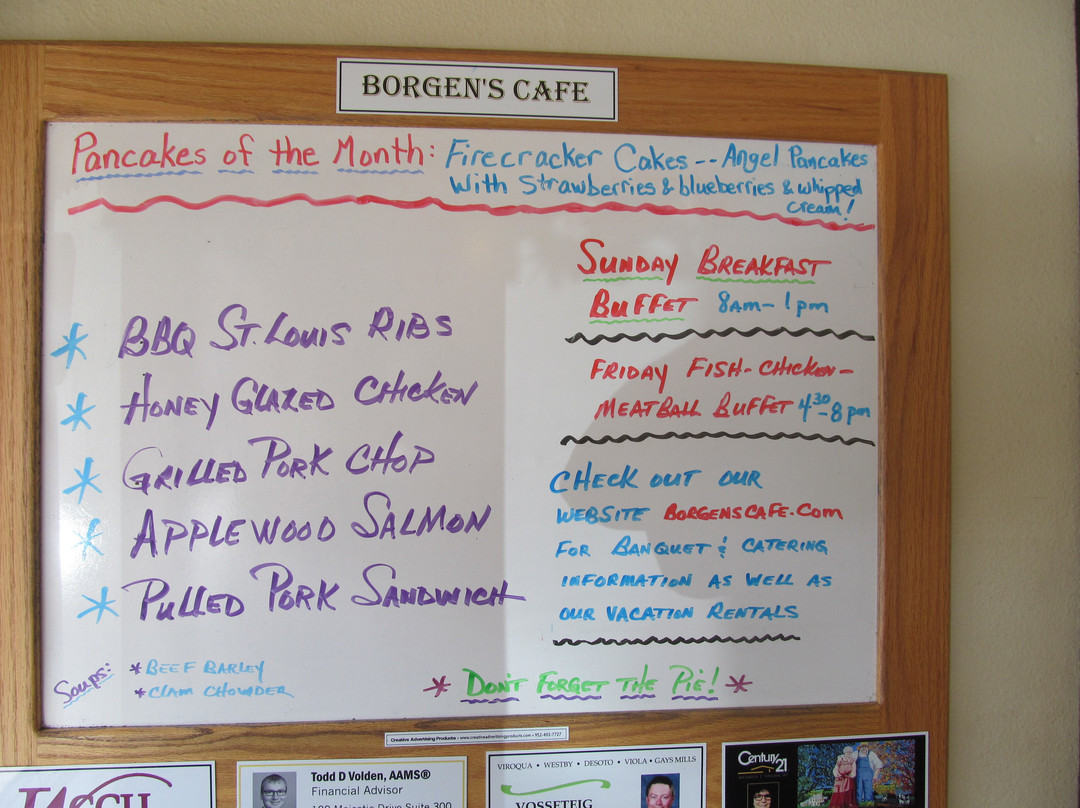 BORGEN'S CAFE
Pancakes of the Month: Firecracker Cakes -- Angel Pancakes
With Strawberries & blueberries & whipped
cream!
* BBQ ST. LOUIS RIBS
* HONEY GLAZED CHICKEN
* GRILLED PORK CHOP
* APPLEWOOD SALMON
* PULLED PORK SANDWICH
Soups:
* BEEF BARLEY
* CLAM CHOWDER
SUNDAY BREAKFAST
BUFFET 8AM - 1pm
FRIDAY FISH - CHICKEN -
MEATBALL BUFFET 4 30 - 8 pm
CHECK OUT OUR
WEBSITE BORGENSCAFE.COM
FOR BANQUET & CATERING
INFORMATION AS WELL AS
OUR VACATION RENTALS
* DON'T FORGET THE PIE! *
Creative Advertising Products • www.creativeadvertisingproducts.com • 952-403-7727
Todd D Volden, AAMS®
Financial Advisor
Suite 300
VIROQUA • WESTBY • DESOTO • VIOLA • GAYS MILLS
VOSSETEIG
Century 21